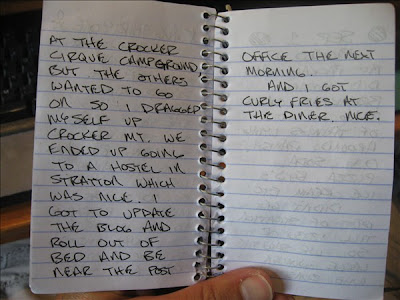 AT THE CROCKER
CIRQUE CAMPGROUND,
BUT THE OTHERS
WANTED TO GO
ON SO I DRAGGED
MYSELF UP
CROCKER MT. WE
ENDED UP GOING
TO A HOSTEL IN
STRATTON WHICH
WAS NICE. I
GOT TO UPDATE
THE BLOG AND
ROLL OUT OF
BED AND BE
NEAR THE POST
OFFICE THE NEXT
MORNING.
AND I GOT
CURLY FRIES AT
THE DINER. NICE.